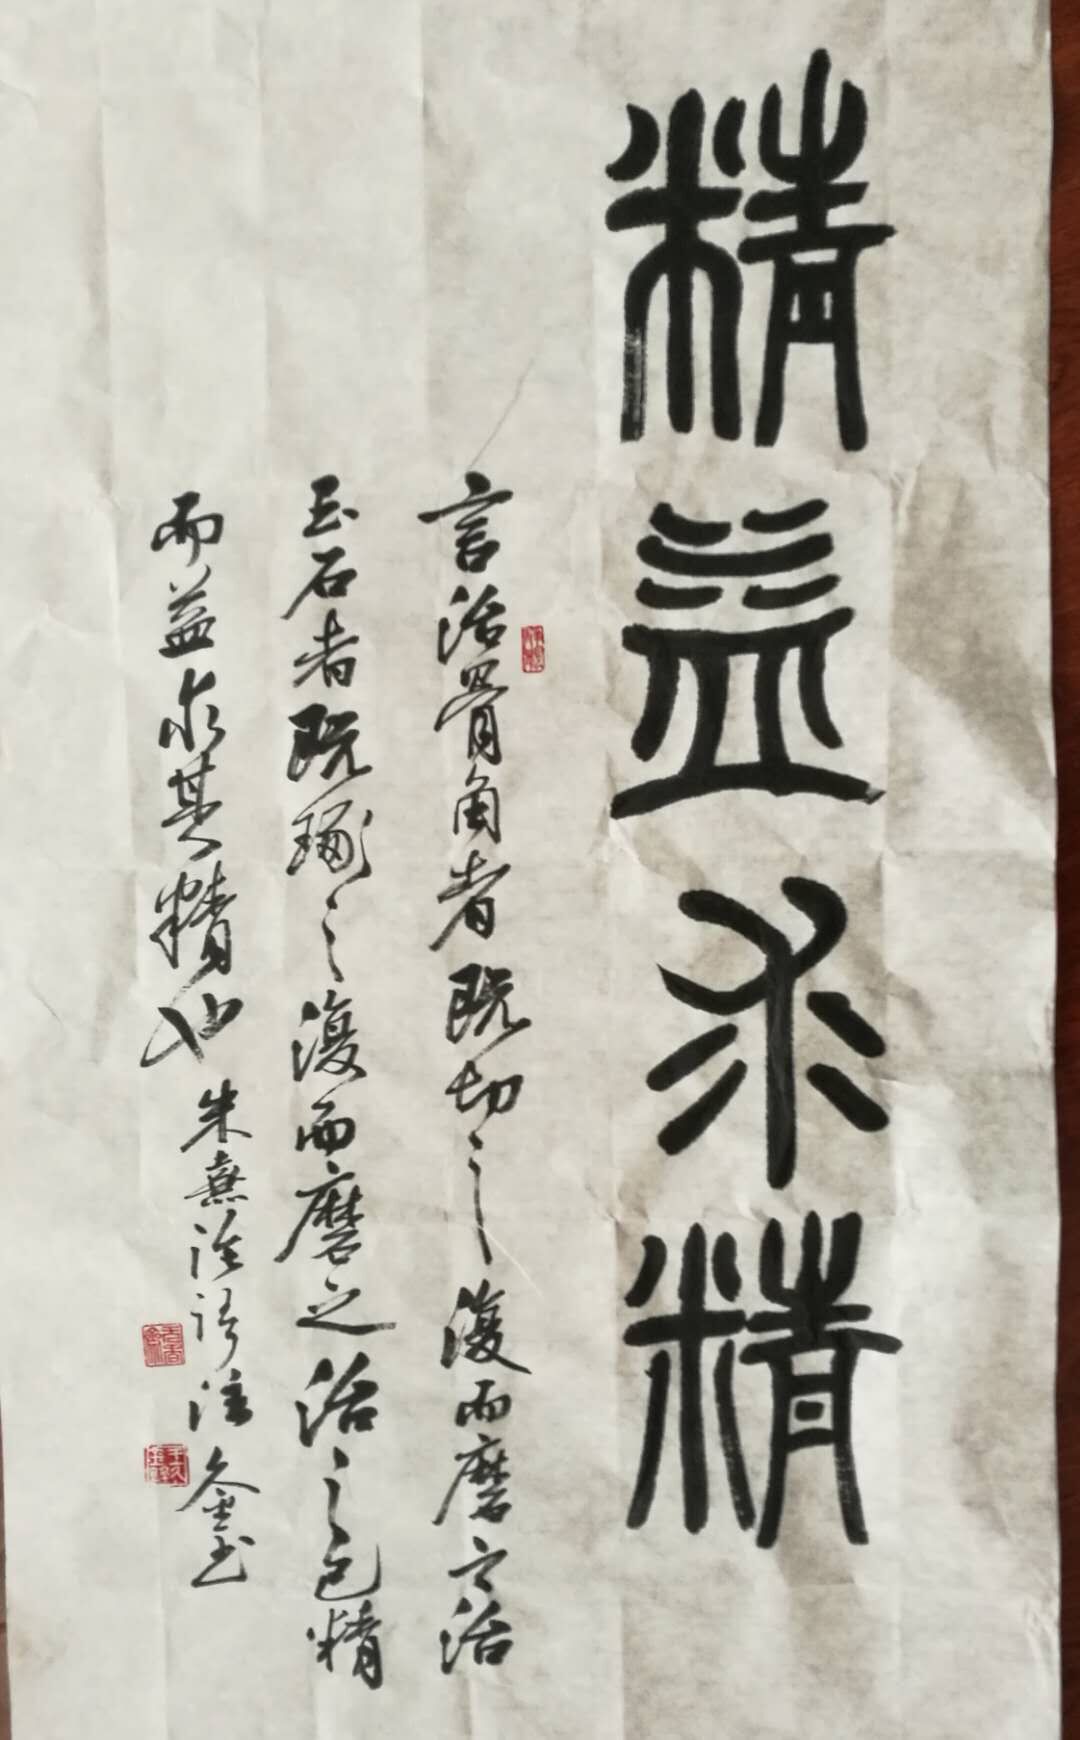 精益求精
言治骨角者既切之復而磨之治
玉石者既琢之復而磨之治之已精
而益求其精也
朱熹论语注 金玉